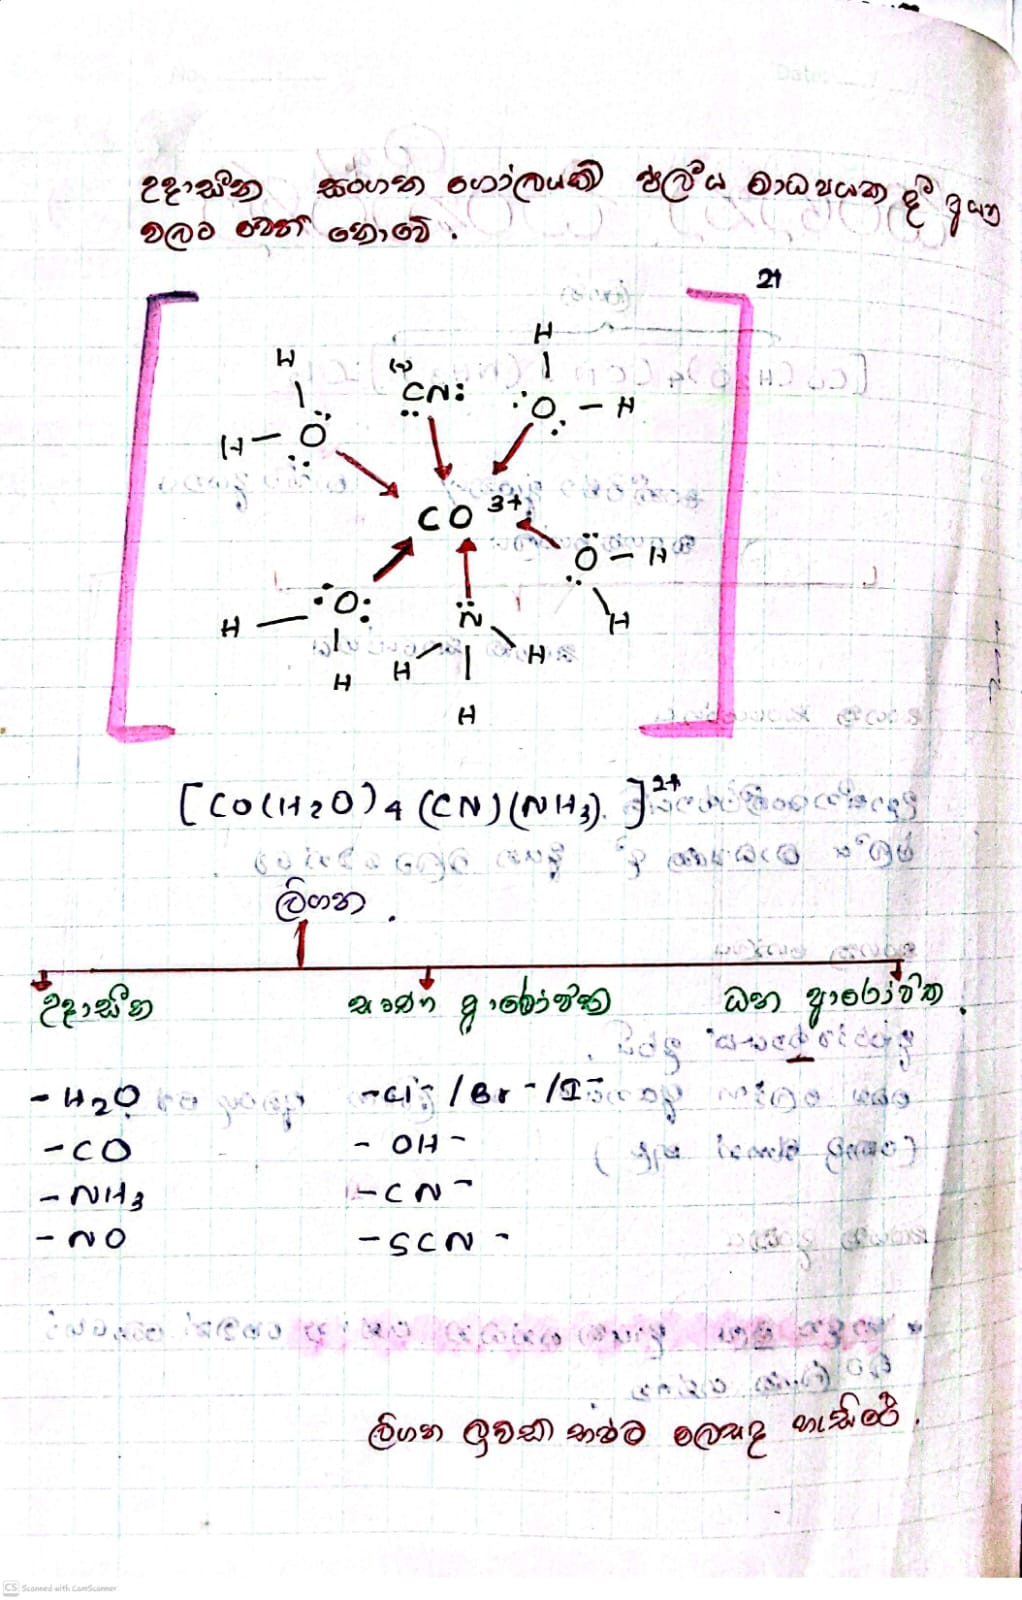 උදාසීන සංගත ගෝලයක් ජලීය මාධ්‍යයක දී අයන
වලට වෙන් නොවේ .
2+
H
H
(-)
H
CN:
O - H
H - O
CO 3+
O - H
O
H
N
H
H
H
H
H
[CO(H2O)4 (CN)(NH3). ]2+
ලිගන .
උදාසීන සෘණ ආරෝපිත ධන ආරෝපිත .
- H2O - Cl- / Br- / I-
- CO - OH-
- NH3 - CN-
- NO - SCN-
ලිගන ලුවිස් භෂ්ම ලෙසද හැසිරේ .
CS Scanned with CamScanner